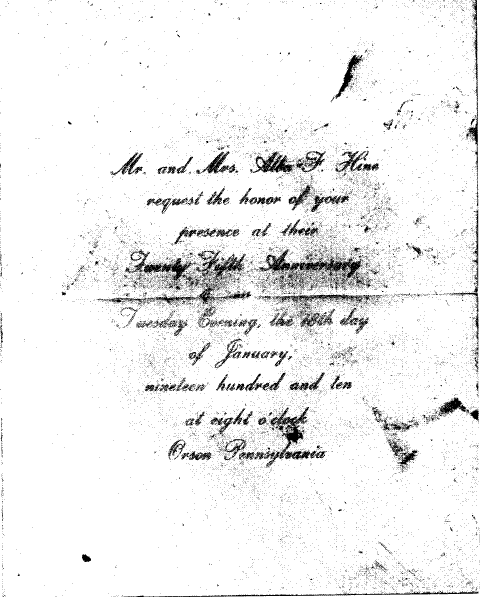 Mr. and Mrs. Alba F. Hine
request the honor of your
presence at their
Twenty Fifth Anniversary
on
Tuesday Evening, the 18th day
of January,
nineteen hundred and ten
at eight o'clock
Orson Pennsylvania